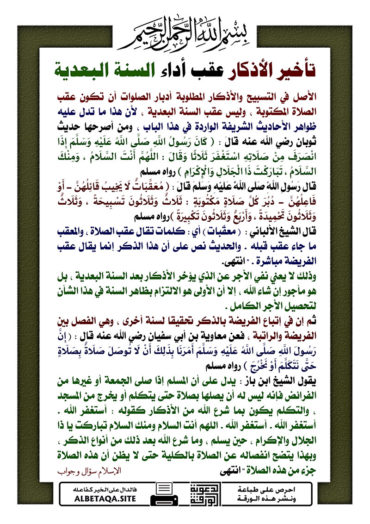 بسم الله الرحمن الرحيم
تأخير الأذكار عقب أداء السنة البعدية
الأصل في التسبيح والأذكار المطلوبة أدبار الصلوات أن تكون عقب
الصلاة المكتوبة ، وليس عقب السنة البعدية ، لأن هذا ما تدل عليه
ظواهر الأحاديث الشريفة الواردة في هذا الباب ، ومن أصرحها حديث
ثوبان رضي الله عنه قال : ( كَانَ رَسُولُ اللهِ صَلَّى اللهُ عَلَيْهِ وَسَلَّمَ إِذَا
انْصَرَفَ مِنْ صَلَاتِهِ اسْتَغْفَرَ ثَلَاثًا وَقَالَ : اللهُمَّ أَنْتَ السَّلَامُ ، وَمِنْكَ
السَّلَامُ ، تَبَارَكْتَ ذَا الْجَلَالِ وَالْإِكْرَامِ ) رواه مسلم
قال رسول الله صلى الله عليه وسلم قال : ( مُعَقِّبَاتٌ لَا يَخِيبُ قَائِلُهُنَّ – أَوْ
فَاعِلُهُنَّ – دُبُرَ كُلِّ صَلَاةٍ مَكْتُوبَةٍ : ثَلَاثٌ وَثَلَاثُونَ تَسْبِيحَةً ، وَثَلَاثٌ
وَثَلَاثُونَ تَحْمِيدَةً ، وَأَرْبَعٌ وَثَلَاثُونَ تَكْبِيرَةً )رواه مسلم
قال الشيخ الألباني : ( معقبات ) أي : كلمات تقال عقب الصلاة ، والمعقب
ما جاء عقب قبله . والحديث نص على أن هذا الذكر إنما يقال عقب
الفريضة مباشرة . - انتهى.
وذلك لا يعني نفي الأجر عن الذي يؤخر الأذكار بعد السنة البعدية ، بل
هو مأجور إن شاء الله ، إلا أن الأولى هو الالتزام بظاهر السنة في هذا الشأن
لتحصيل الأجر الكامل .
ثم إن في إتباع الفريضة بالذكر تحقيقا لسنة أخرى ، وهي الفصل بين
الفريضة والراتبة ، فعن معاوية بن أبي سفيان رضي الله عنه قال : ( إِنَّ
رَسُولَ اللهِ صَلَّى اللهُ عَلَيْهِ وَسَلَّمَ أَمَرَنَا بِذَلِكَ أَنْ لَا تُوصَلَ صَلَاةٌ بِصَلَاةٍ
حَتَّى نَتَكَلَّمَ أَوْ نَخْرُجَ ) رواه مسلم
يقول الشيخ ابن باز : يدل على أن المسلم إذا صلى الجمعة أو غيرها من
الفرائض فإنه ليس له أن يصلها بصلاة حتى يتكلم أو يخرج من المسجد
، والتكلم يكون بما شرع الله من الأذكار كقوله : أستغفر الله .
أستغفر الله . أستغفر الله . اللهم أنت السلام ومنك السلام تباركت يا ذا
الجلال والإكرام ، حين يسلم ، وما شرع الله بعد ذلك من أنواع الذكر ،
وبهذا يتضح انفصاله عن الصلاة بالكلية حتى لا يظن أن هذه الصلاة
جزء من هذه الصلاة - انتهى
الإسلام سؤال وجواب
احرص على طباعة
ونشر هذه الورقة
فالدال على الخير كفاعله
ALBETAQA.SITE